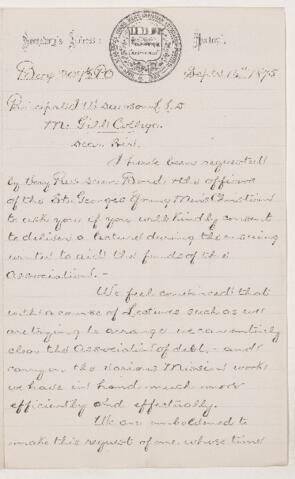 Secretary's Address:
Montreal.
Box 
P.O
Sept 15th 1875
Principal Dawson L.L.D
McGill College.
Dear Sir.
I have been requested
by Very Rev Dean Bond, & the officers
of the St. Georges Young Mens Christian
to ask you if you will kindly consent
to deliver a lecture during the ensuing
winter to aid the funds of the
Association. -
We feel convinced that
with a course of Lectures such as we
are trying to arrange we can entirely
clear the Association of debt, - and
carry on the various Mission work
we have in hand much more
efficiently and effectually.
We are emboldened to
make this request of one whose time